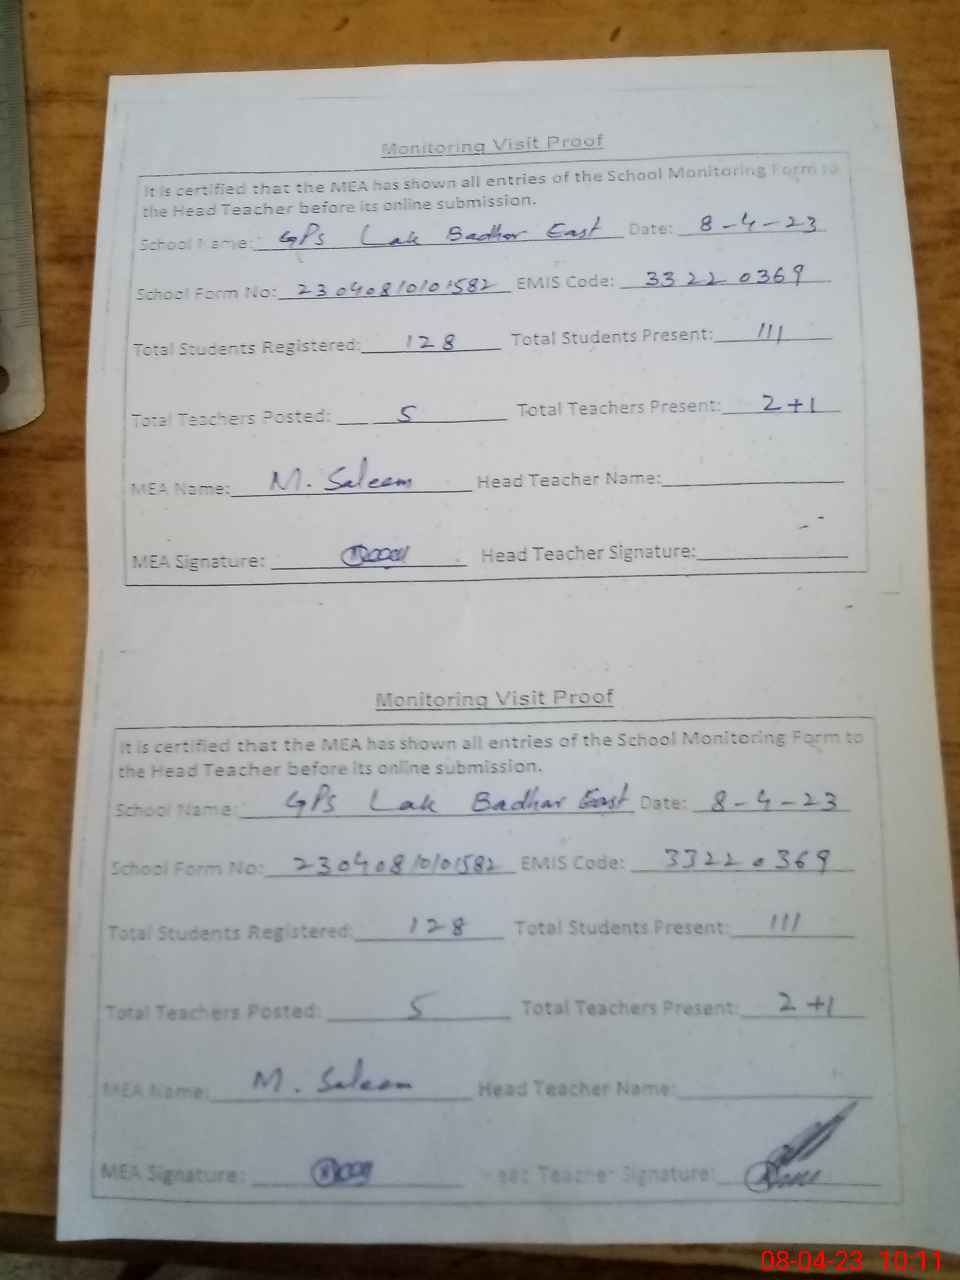 Monitoring Visit Proof
It is certified that the MEA has shown all entries of the School Monitoring Form to
the Head Teacher before its online submission.
School Name: GPS Lak Badhar East Date: 8-4-23
School Form No: 23040810101582 EMIS Code: 33220369
Total Students Registered: 128 Total Students Present: 111
Total Teachers Posted: 5 Total Teachers Present: 2+1
MEA Name: M. Saleem Head Teacher Name:
MEA Signature: Head Teacher Signature:
Monitoring Visit Proof
It is certified that the MEA has shown all entries of the School Monitoring Form to
the Head Teacher before its online submission.
School Name: GPS Lak Badhar East Date: 8-4-23
School Form No: 23040810101582 EMIS Code: 33220369
Total Students Registered: 128 Total Students Present: 111
Total Teachers Posted: 5 Total Teachers Present: 2+1
MEA Name: M. Saleem Head Teacher Name:
MEA Signature: Head Teacher Signature:
08-04-23 10:11